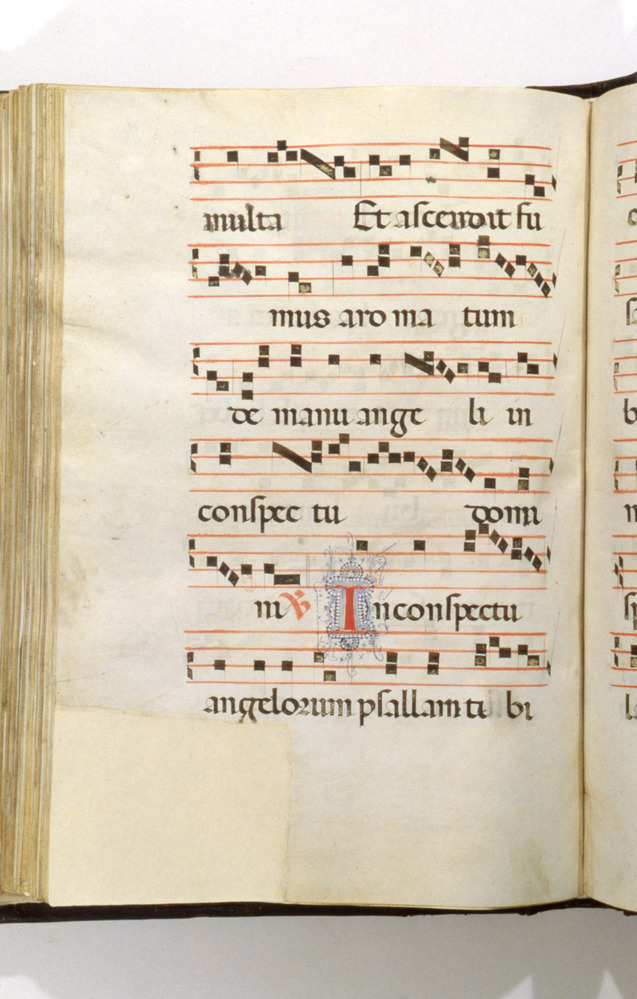 multa Et ascendit fu
mus aro ma tum
de manu ange li in
conspec tu domi
ni ℟ In conspectu
angelorum psallam ti bi